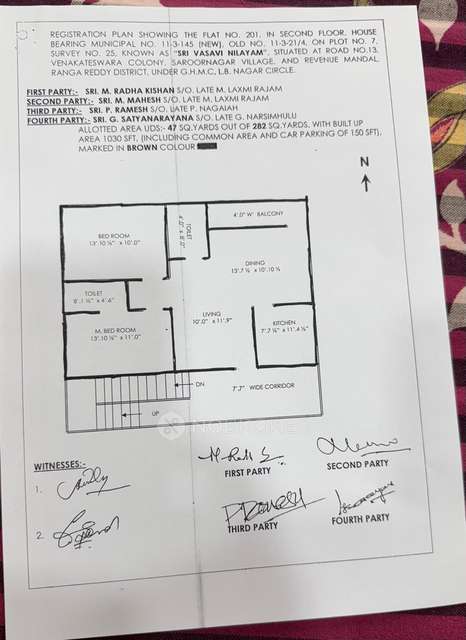 REGISTRATION PLAN SHOWING THE FLAT NO. 201, IN SECOND FLOOR, HOUSE
BEARING MUNICIPAL NO. 11-3-145 (NEW), OLD NO. 11-3-21/4, ON PLOT NO. 7,
SURVEY NO. 25, KNOWN AS "SRI VASAVI NILAYAM", SITUATED AT ROAD NO.13,
VENAKATESWARA COLONY, SAROORNAGAR VILLAGE, AND REVENUE MANDAL
RANGA REDDY DISTRICT, UNDER G.H.M.C, L.B. NAGAR CIRCLE.
FIRST PARTY:- SRI. M. RADHA KISHAN S/O. LATE M. LAXMI RAJAM
SECOND PARTY:- SRI. M. MAHESH S/O. LATE M. LAXMI RAJAM
THIRD PARTY:- SRI. P. RAMESH S/O. LATE P. NAGAIAH
FOURTH PARTY:- SRI. G. SATYANARAYANA S/O. LATE G. NARSIMHULU
ALLOTTED AREA UDS:- 47 SQ.YARDS OUT OF 282 SQ.YARDS, WITH BUILT UP
AREA 1030 SFT, (INCLUDING COMMON AREA AND CAR PARKING OF 150 SFT),
MARKED IN BROWN COLOUR
N
4'.0" W' BALCONY
TOILET
4'.0" x 8'.0"
BED ROOM
13'.10 ½" x 10'.0"
DINING
13'.7 ½ x 10'.10 ½
TOILET
8'.1 ½" x 4'.6"
LIVING
10'.0" x 11'.9"
KITCHEN
7'.7 ½" x 11'.4 ½"
M. BED ROOM
13'.10 ½" x 11'.0"
DN
7'.7" WIDE CORRIDOR
UP
WITNESSES:-
1.
2.
FIRST PARTY
SECOND PARTY
P RAMESH
THIRD PARTY
FOURTH PARTY
NOBROKER